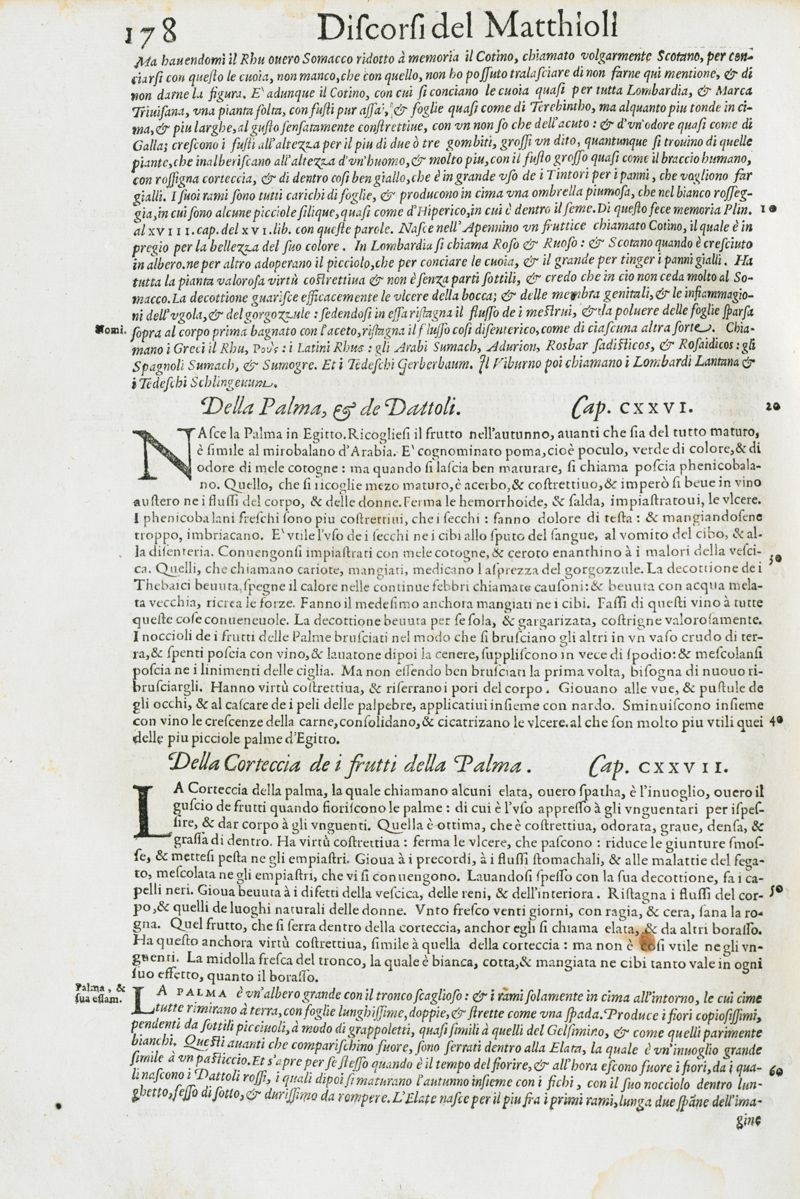 178 Diſcorſi del Matthioli
Ma hauendomi il Rhu ouero Somacco ridotto à memoria il Cotino, chiamato volgarmente Scotano, per con-
ciarſi con queſto le cuoia, non manco, che con quello, non ho poſſuto tralaſciare di non farne qui mentione, & di
non darne la figura. E' adunque il Cotino, con cui ſi conciano le cuoia quaſi per tutta Lombardia, & Marca
Triuiſana, vna pianta folta, con fuſti pur aſſai, & foglie quaſi come di Terebintho, ma alquanto piu tonde in ci-
ma, & piu larghe, al guſto ſenſatamente conſtrettiue, con vn non ſo che dell'acuto : & d'vn'odore quaſi come di
Galla; creſcono i fuſti all'altezza per il piu di due ò tre gombiti, groſſi vn dito, quantunque ſi trouino di quelle
piante, che inalberiſcano all'altezza d'vn'huomo, & molto piu, con il fuſto groſſo quaſi come il braccio humano,
con roſſigna corteccia, & di dentro coſi ben giallo, che è in grande vſo de i Tintori per i panni, che vogliono far
gialli. I ſuoi rami ſono tutti carichi di foglie, & producono in cima vna ombrella piumoſa, che nel bianco roſſeg-
gia, in cui ſono alcune picciole ſilique, quaſi come d'Hiperico, in cui è dentro il ſeme. Di queſto fece memoria Plin. 10
al XVIII. cap. del XVI. lib. con queſte parole. Naſce nell'Apennino vn fruttice chiamato Cotino, il quale è in
pregio per la bellezza del ſuo colore. In Lombardia ſi chiama Roſo & Ruoſo : & Scotano quando è creſciuto
in albero. ne per altro adoperano il picciolo, che per conciare le cuoia, & il grande per tinger i panni gialli. Ha
tutta la pianta valoroſa virtù coſtrettiua & non è ſenza parti ſottili, & credo che in cio non ceda molto al So-
macco. La decottione guariſce efficacemente le vlcere della bocca; & delle membra genitali, & le infiammagio-
ni dell'vgola, & del gorgozzule : ſedendoſi in eſſa riſtagna il fluſſo de i meſtrui, & la poluere delle foglie ſparſa
Nomi. ſopra al corpo prima bagnato con l'aceto, riſtagna il fluſſo coſi diſenterico, come di ciaſcuna altra ſorte. Chia-
mano i Greci il Rhu, Ροῦς : i Latini Rhus : gli Arabi Sumach, Adurion, Rosbar ſadiſticos, & Roſaidicos : gli
Spagnoli Sumach, & Sumogre. Et i Tedeſchi Gerberbaum. Il Viburno poi chiamano i Lombardi Lantana &
i Tedeſchi Schlingeuum.
Della Palma, & de Dattoli. Cap. CXXVI. 20
NAſce la Palma in Egitto. Ricoglieſi il frutto nell'autunno, auanti che ſia del tutto maturo,
è ſimile al mirobalano d'Arabia. E' cognominato poma, cioè poculo, verde di colore, & di
odore di mele cotogne : ma quando ſi laſcia ben maturare, ſi chiama poſcia phenicobala-
no. Quello, che ſi ricoglie mezo maturo, è acerbo, & coſtrettiuo, & imperò ſi beue in vino
auſtero ne i fluſſi del corpo, & delle donne. Ferma le hemorrhoide, & ſalda, impiaſtratoui, le vlcere.
I phenicobalani freſchi ſono piu coſtrettiui, che i ſecchi : fanno dolore di teſta : & mangiandoſene
troppo, imbriacano. E' vtile l'vſo de i ſecchi ne i cibi allo ſputo del ſangue, al vomito del cibo, & al-
la diſenteria. Conuengonſi impiaſtrati con mele cotogne, & ceroto enanthino à i malori della veſci- 30
ca. Quelli, che chiamano cariote, mangiati, medicano l'aſprezza del gorgozzule. La decottione de i
Thebaici beuuta, ſpegne il calore nelle continue febbri chiamate cauſoni: & beuuta con acqua mela-
ta vecchia, ricrea le forze. Fanno il medeſimo anchora mangiati ne i cibi. Faſſi di queſti vino à tutte
queſte coſe conueneuole. La decottione beuuta per ſe ſola, & gargarizata, coſtrigne valoroſamente.
I noccioli de i frutti delle Palme bruſciati nel modo che ſi bruſciano gli altri in vn vaſo crudo di ter-
ra, & ſpenti poſcia con vino, & lauatone dipoi la cenere, ſuppliſcono in vece di ſpodio: & meſcolanſi
poſcia ne i linimenti delle ciglia. Ma non eſſendo ben bruſciati la prima volta, biſogna di nuouo ri-
bruſciargli. Hanno virtù coſtrettiua, & riſerrano i pori del corpo. Giouano alle vue, & puſtule de
gli occhi, & al caſcare de i peli delle palpebre, applicatiui inſieme con nardo. Sminuiſcono inſieme
con vino le creſcenze della carne, conſolidano, & cicatrizano le vlcere. al che ſon molto piu vtili quei 40
delle piu picciole palme d'Egitto.
Della Corteccia de i frutti della Palma. Cap. CXXVII.
LA Corteccia della palma, la quale chiamano alcuni elata, ouero ſpatha, è l'inuoglio, ouero il
guſcio de frutti quando fioriſcono le palme : di cui è l'vſo appreſſo à gli vnguentari per iſpeſ-
ſire, & dar corpo à gli vnguenti. Quella è ottima, che è coſtrettiua, odorata, graue, denſa, &
graſſa di dentro. Ha virtù coſtrettiua : ferma le vlcere, che paſcono : riduce le giunture ſmoſ-
ſe, & metteſi peſta ne gli empiaſtri. Gioua à i precordi, à i fluſſi ſtomachali, & alle malattie del fega-
to, meſcolata ne gli empiaſtri, che vi ſi conuengono. Lauandoſi ſpeſſo con la ſua decottione, fa i ca-
pelli neri. Gioua beuuta à i difetti della veſcica, delle reni, & dell'interiora. Riſtagna i fluſſi del cor- 50
po, & quelli de luoghi naturali delle donne. Vnto freſco venti giorni, con ragia, & cera, ſana la ro-
gna. Quel frutto, che ſi ſerra dentro della corteccia, anchor egli ſi chiama elata, & da altri boraſſo.
Ha queſto anchora virtù coſtrettiua, ſimile à quella della corteccia : ma non è coſi vtile ne gli vn-
guenti. La midolla freſca del tronco, la quale è bianca, cotta, & mangiata ne cibi tanto vale in ogni
ſuo effetto, quanto il boraſſo.
Palma, &
ſua eſſam.
LA PALMA è vn'albero grande con il tronco ſcaglioſo : & i rami ſolamente in cima all'intorno, le cui cime
tutte rimirano à terra, con foglie lunghiſſime, doppie, & ſtrette come vna ſpada. Produce i fiori copioſiſſimi,
pendenti da ſottili picciuoli, à modo di grappoletti, quaſi ſimili à quelli del Gelſimino, & come quelli parimente
bianchi. Queſti auanti che compariſchino fuore, ſono ſerrati dentro alla Elata, la quale è vn'inuoglio grande
ſimile à vn paſticcio. Et s'apre per ſe ſteſſo quando è il tempo del fiorire, & all'hora eſcono fuore i fiori, da i qua- 60
li naſcono i Dattoli roſſi, i quali dipoi ſi maturano l'autunno inſieme con i fichi, con il ſuo nocciolo dentro lun-
ghetto, feſſo di ſotto, & duriſſimo da rompere. L'Elate naſce per il piu fra i primi rami, lunga due ſpāne dell'ima-
gine